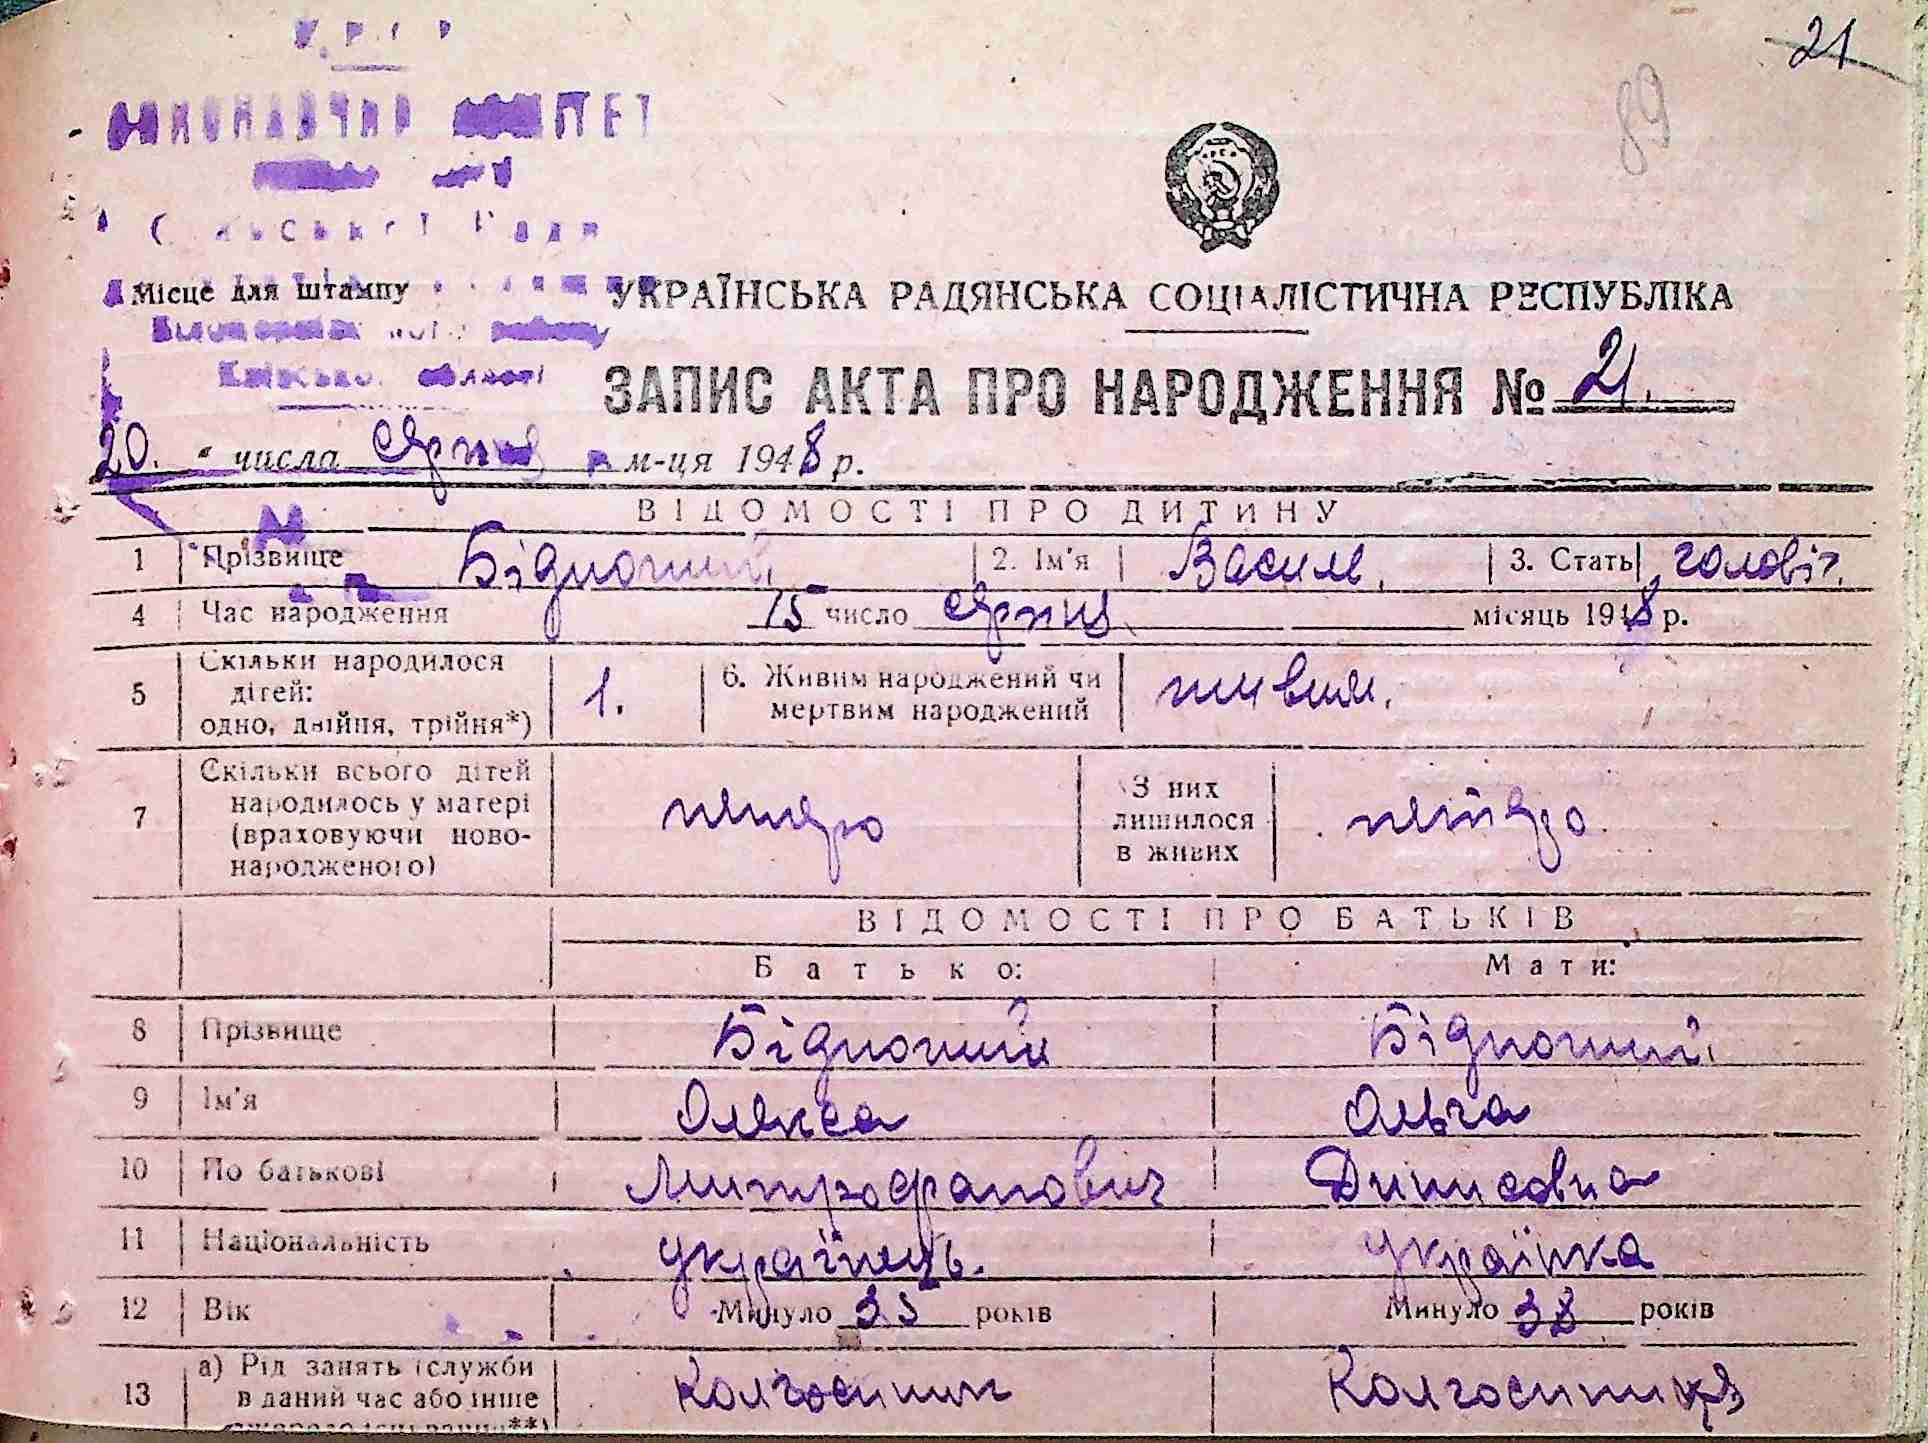 21
89
УРСР
ВИКОНАВЧИЙ КОМІТЕТ
Сільської Ради
Місце для штампу
району
Київської області
УКРАЇНСЬКА РАДЯНСЬКА СОЦІАЛІСТИЧНА РЕСПУБЛІКА
ЗАПИС АКТА ПРО НАРОДЖЕННЯ № 21.
20. " числа серпня м-ця 1948 р.
ВІДОМОСТІ ПРО ДИТИНУ
1 Прізвище Бідноший 2. Ім'я Василь. 3. Стать чоловіч.
4 Час народження 15 число серпня місяць 1948 р.
5 Скільки народилося дітей: одно, двійня, трійня*) 1. 6. Живим народжений чи мертвим народжений живим.
7 Скільки всього дітей народилось у матері (враховуючи новонародженого) З них лишилося в живих
ВІДОМОСТІ ПРО БАТЬКІВ
Батько: Мати:
8 Прізвище Бідноший Бідноший
9 Ім'я Олекса Ольга
10 По батькові Митрофанович Динисовна
11 Національність українець. українка
12 Вік Минуло 35 років Минуло 38 років
13 а) Рід занять (служби в даний час або інше Колгоспник Колгоспниця